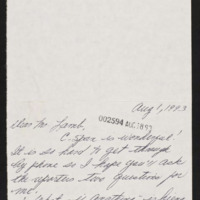 Aug 1, 1993
Dear Mr Lamb,
002594 AUG 1893
C-Span is wonderful!
It is so hard to get through
by phone so I hope you'll ask
the reporters two questions for
me.
What is